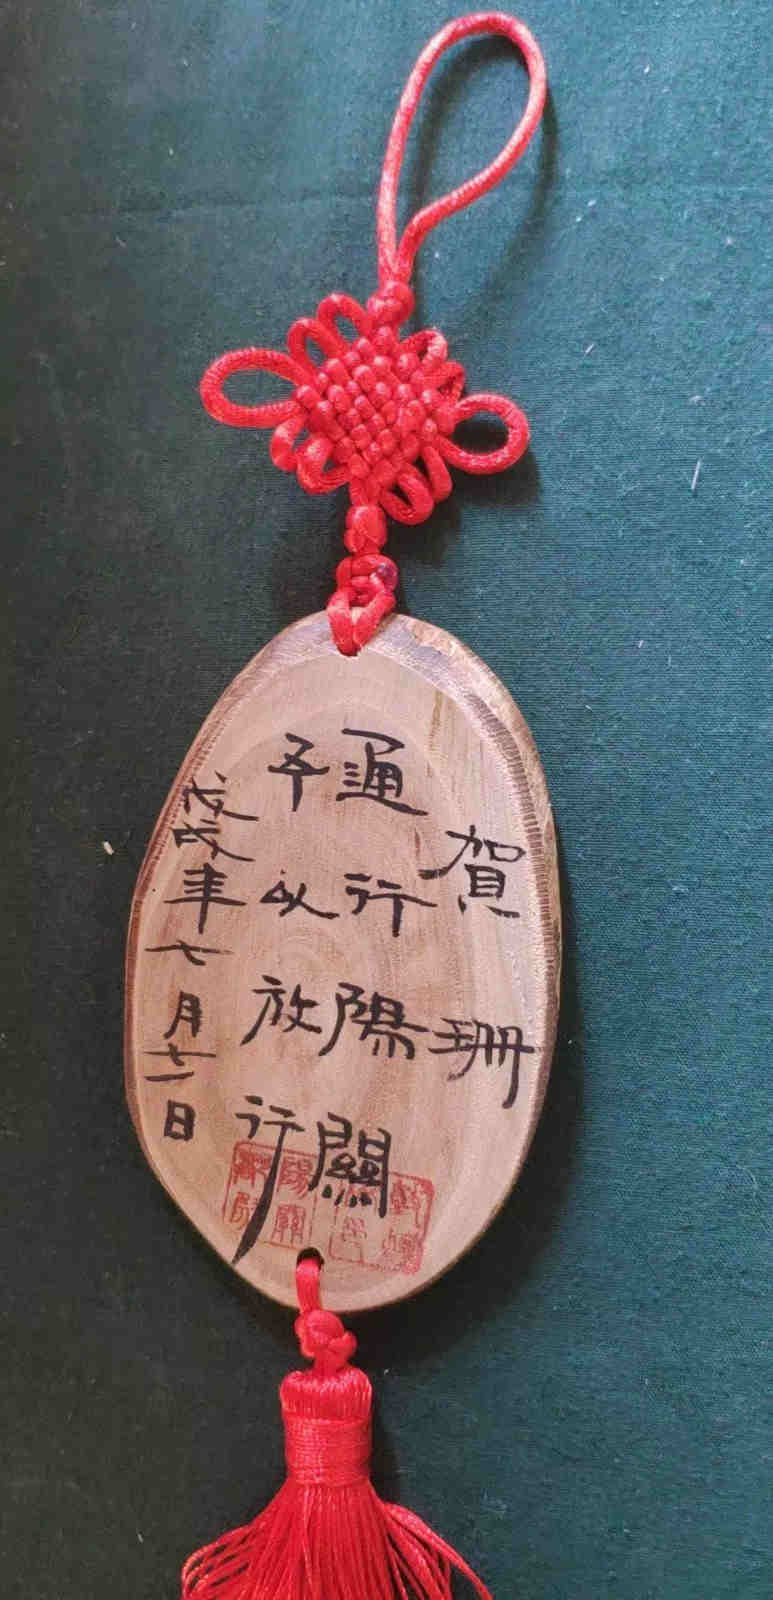 賀珊
通行陽關
予以放行
戊戌年七月日